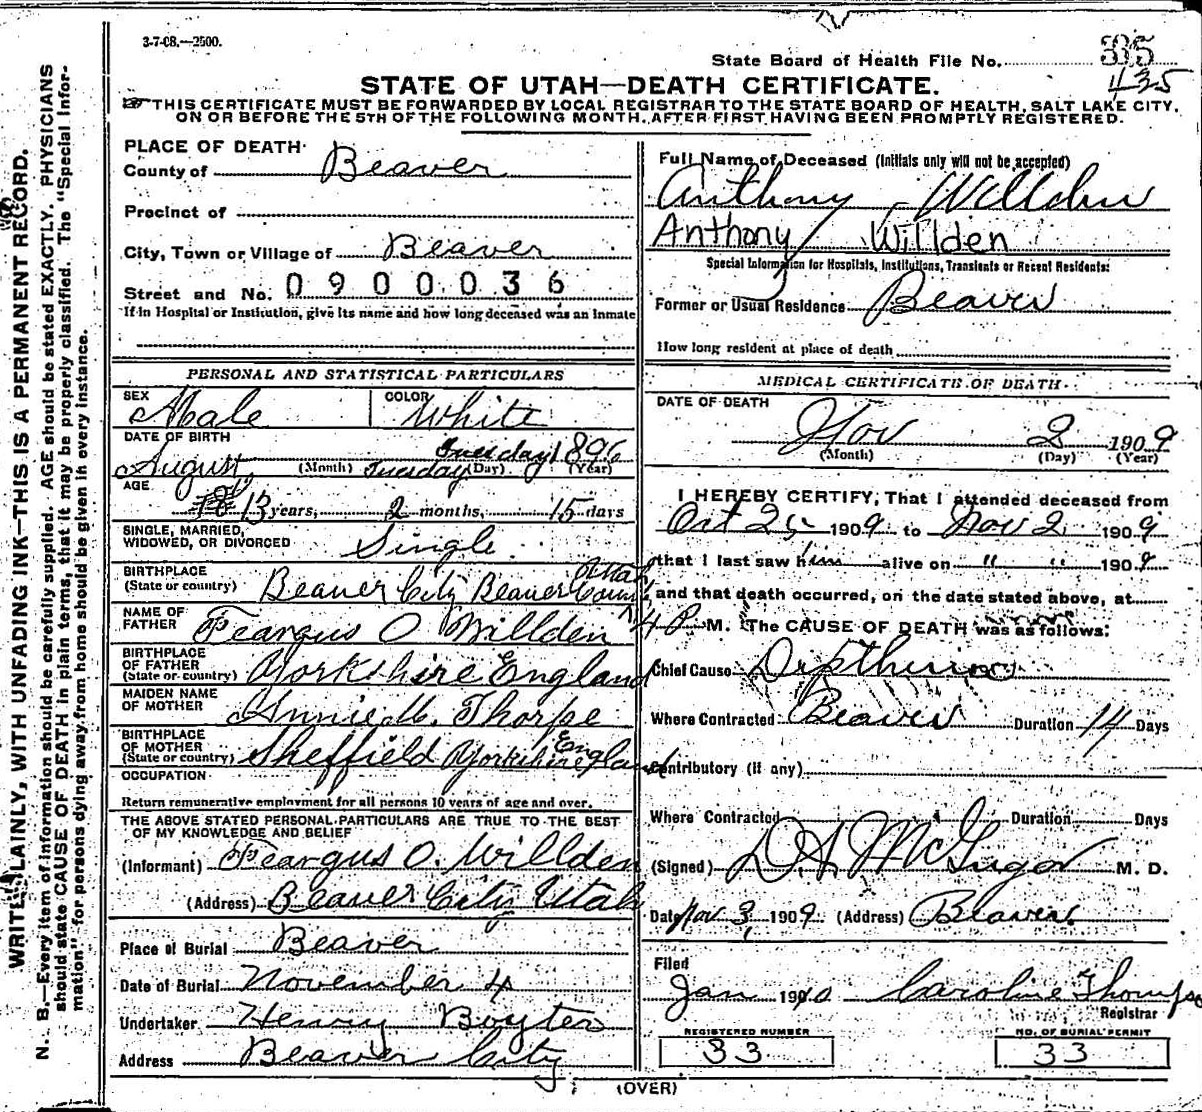 3-7-08.—2500.
State Board of Health File No. 335
435
STATE OF UTAH—DEATH CERTIFICATE.
THIS CERTIFICATE MUST BE FORWARDED BY LOCAL REGISTRAR TO THE STATE BOARD OF HEALTH, SALT LAKE CITY,
ON OR BEFORE THE 5TH OF THE FOLLOWING MONTH, AFTER FIRST HAVING BEEN PROMPTLY REGISTERED.
WRITE PLAINLY, WITH UNFADING INK—THIS IS A PERMANENT RECORD.
N. B.—Every item of information should be carefully supplied. AGE should be stated EXACTLY. PHYSICIANS
should state CAUSE OF DEATH in plain terms, that it may be properly classified. The "Special Infor-
mation" for persons dying away from home should be given in every instance.
PLACE OF DEATH
County of Beaver
Precinct of
City, Town or Village of Beaver
Street and No. 0900036
If in Hospital or Institution, give its name and how long deceased was an inmate
PERSONAL AND STATISTICAL PARTICULARS
SEX Male COLOR White
DATE OF BIRTH
August Tuesday Tuesday 1896
(Month) (Day) (Year)
AGE
13 years, 2 months, 15 days
SINGLE, MARRIED,
WIDOWED, OR DIVORCED Single
BIRTHPLACE
(State or country) Beaver City Beaver County Utah
NAME OF
FATHER Feargus O Willden
BIRTHPLACE
OF FATHER
(State or country) Yorkshire England
MAIDEN NAME
OF MOTHER Annie M. Thorpe
BIRTHPLACE
OF MOTHER
(State or country) Sheffield Yorkshire England
OCCUPATION
Return remunerative employment for all persons 10 years of age and over.
THE ABOVE STATED PERSONAL PARTICULARS ARE TRUE TO THE BEST
OF MY KNOWLEDGE AND BELIEF
(Informant) Feargus O. Willden
(Address) Beaver City Utah
Place of Burial Beaver
Date of Burial November 4
Undertaker Henry Boyter
Address Beaver City
Full Name of Deceased (Initials only will not be accepted)
Anthony Willden
Anthony Willden
Special Information for Hospitals, Institutions, Transients or Recent Residents:
Former or Usual Residence Beaver
How long resident at place of death
MEDICAL CERTIFICATE OF DEATH
DATE OF DEATH
Nov 2 1909
(Month) (Day) (Year)
I HEREBY CERTIFY, That I attended deceased from
Oct 25 1909 to Nov 2 1909
that I last saw him alive on " " 1909
and that death occurred, on the date stated above, at
4 P M. The CAUSE OF DEATH was as follows:
Chief Cause Diptheria
Where Contracted Beaver Duration 14 Days
Contributory (if any)
Where Contracted Duration Days
(Signed) D A McGregor M. D.
Date Nov 3, 1909 (Address) Beaver
Filed
Jan 1910 Caroline Thomps
Registrar
REGISTERED NUMBER
33
NO. OF BURIAL PERMIT
33
(OVER)